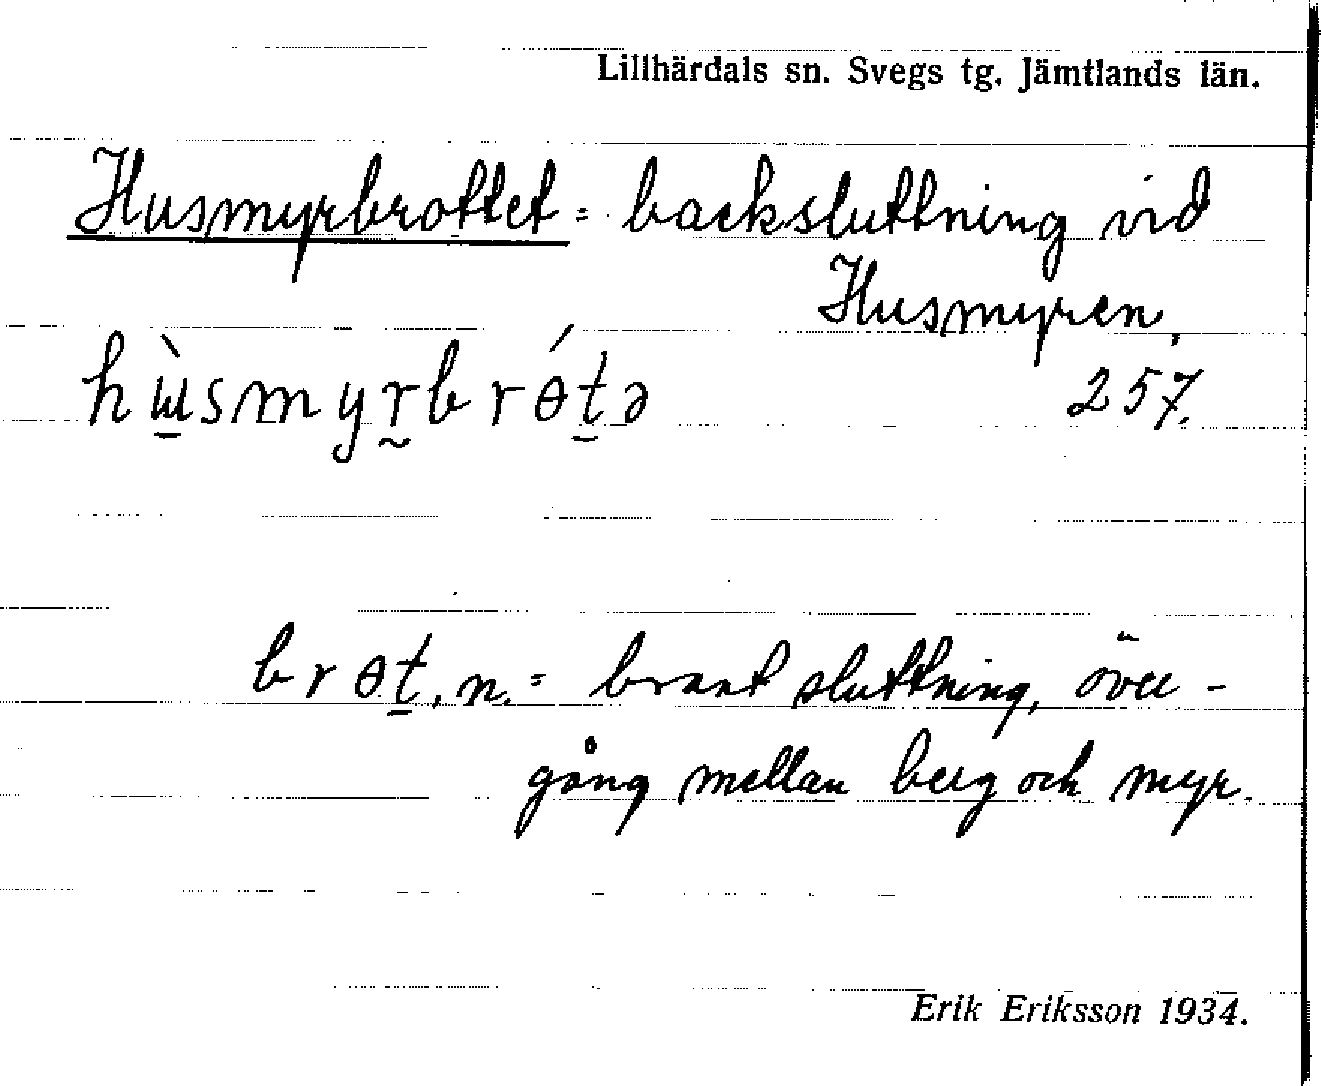 Lillhärdals sn. Svegs tg. Jämtlands län.
Husmyrbrottet = backsluttning vid
Husmyren.
hɯ̠̀smyr̰brɵ́t̠ə 257.
brɵt̠, n. = brant sluttning, över-
gång mellan berg och myr.
Erik Eriksson 1934.